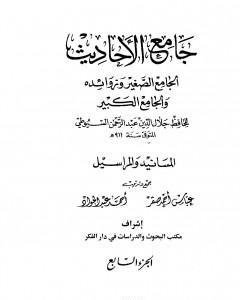 جامع الأحاديث
الجامع الصغير وزوائده
والجامع الكبير
للحافظ جلال الدين عبد الرحمن السيوطي
المتوفى سنة ٩١١ هـ
المسانيد والمراسيل
جمع وترتيب
عباس أحمد صقر أحمد عبد الجواد
إشراف
مكتب البحوث والدراسات في دار الفكر
الجزء السابع